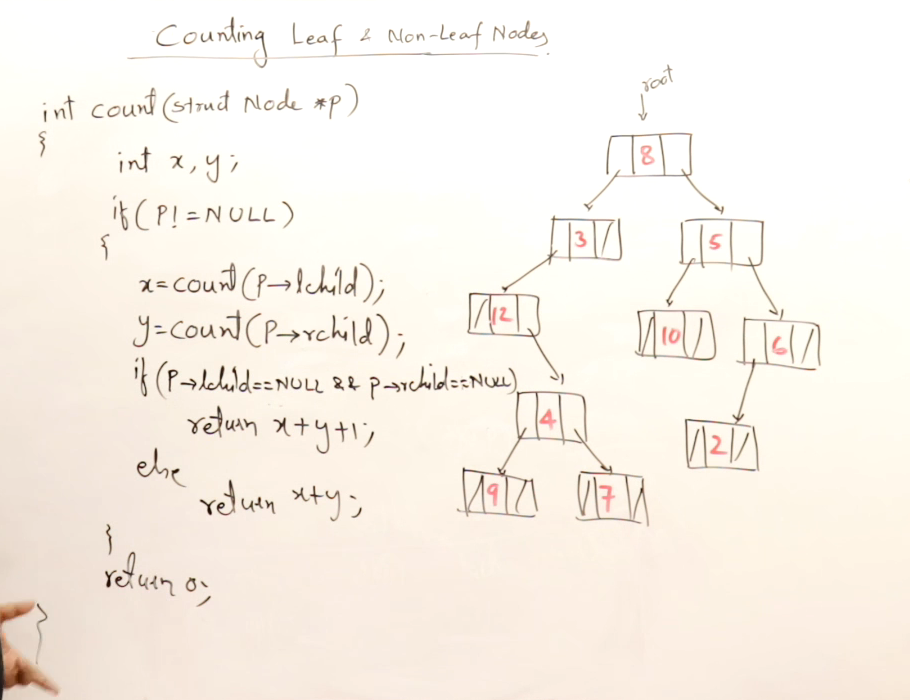 Counting Leaf & Non-Leaf Nodes
int count(struct Node *p)
{
int x, y;
if(P!=NULL)
{
x=count(P→lchild);
y=count(P→rchild);
if(P→lchild==NULL && p→rchild==NULL)
return x+y+1;
else
return x+y;
}
return 0;
}
root
8
3
5
12
10
6
4
2
9
7